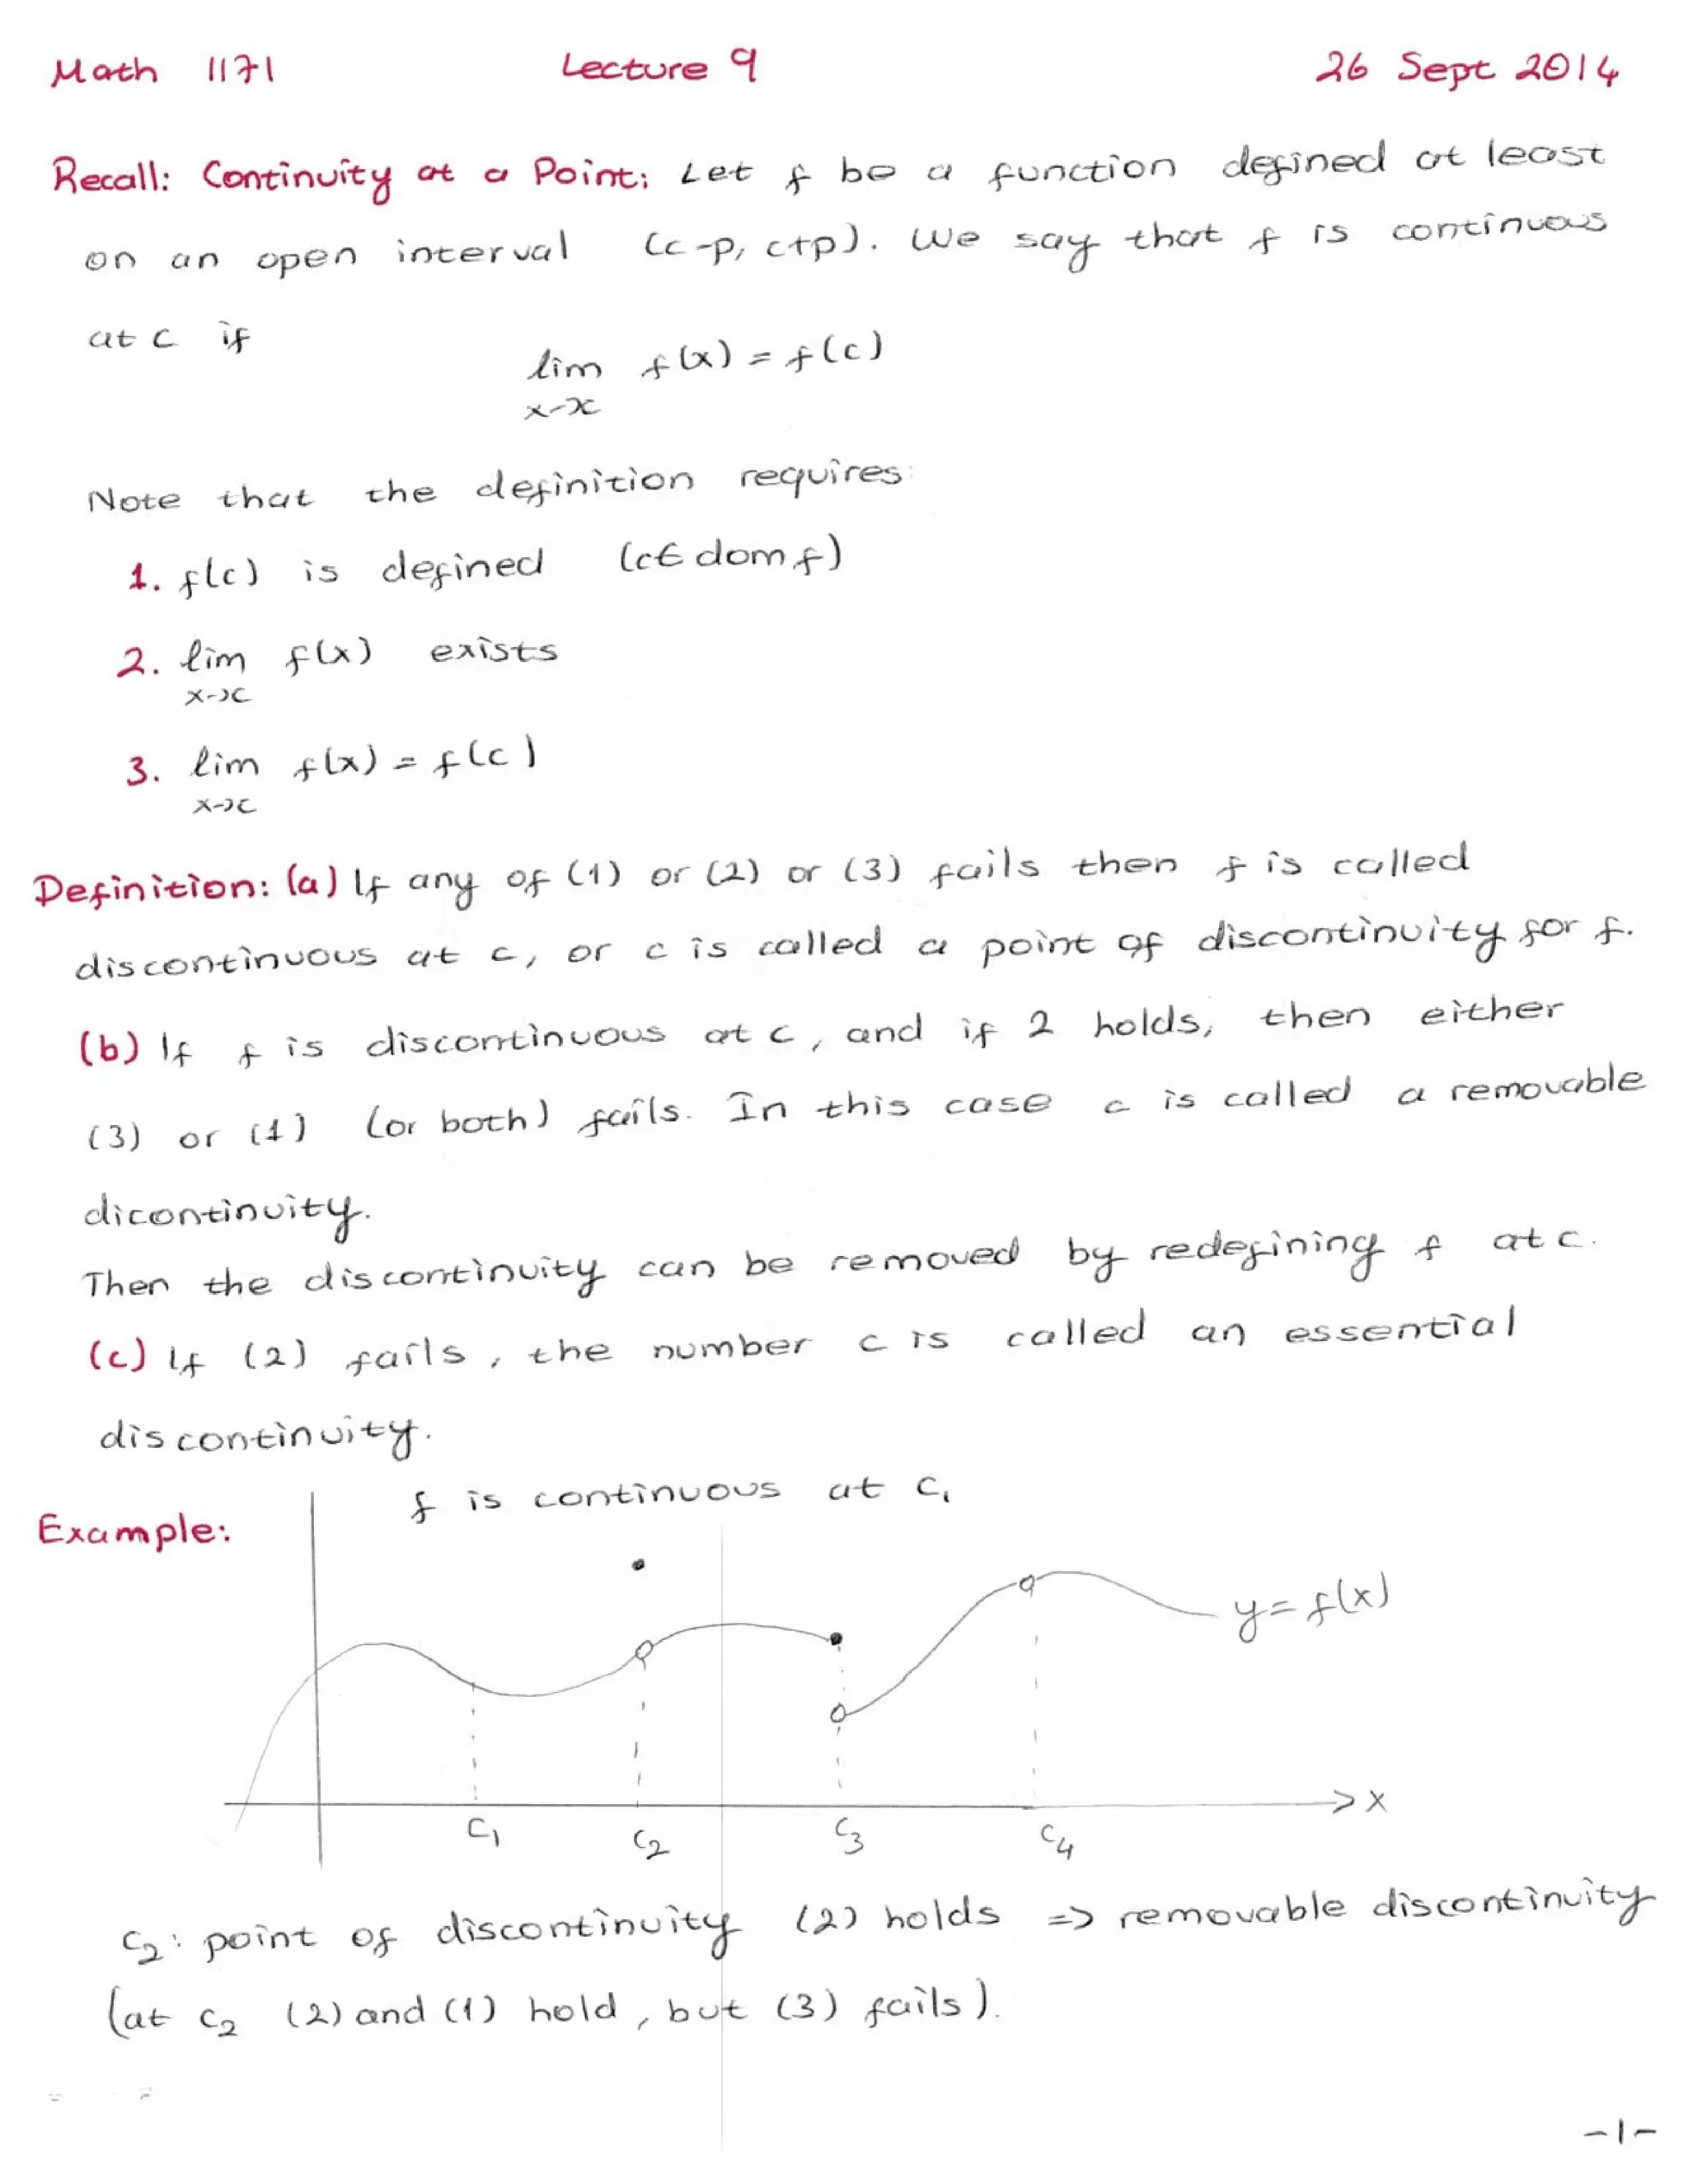 Math 1171 Lecture 9 26 Sept 2014
Recall: Continuity at a Point: Let f be a function defined at least
on an open interval (c-p, c+p). We say that f is continuous
at c if
lim f(x) = f(c)
x→c
Note that the definition requires:
1. f(c) is defined (c∈ dom f)
2. lim f(x) exists
x→c
3. lim f(x) = f(c)
x→c
Definition: (a) If any of (1) or (2) or (3) fails then f is called
discontinuous at c, or c is called a point of discontinuity for f.
(b) If f is discontinuous at c, and if 2 holds, then either
(3) or (1) (or both) fails. In this case c is called a removable
dicontinuity.
Then the discontinuity can be removed by redefining f at c.
(c) If (2) fails, the number c is called an essential
discontinuity.
f is continuous at c₁
Example:
y = f(x)
x
c₁ c₂ c₃ c₄
c₂: point of discontinuity (2) holds => removable discontinuity
(at c₂ (2) and (1) hold, but (3) fails).
-1-